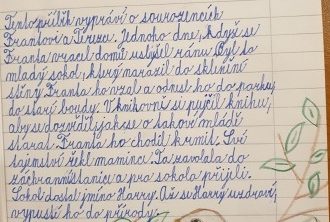 Tento příběh vypráví o sourozencích
Frantovi a Tereze. Jednoho dne, když se
Franta vracel domů uslyšel ránu. Byl to
mladý sokol, který narazil do skleněné
stěny. Franta ho vzal a odnesl ho do parku
do staré boudy. V knihovně si půjčil knihu,
aby se dozvěděl, jak se o takové mládě
starat. Franta ho chodil krmit. Své
tajemství řekl mamince. Ta zavolala do
záchranné stanice a pro sokola přijeli.
Sokol dostal jméno Harry. Až se Harry uzdraví,
vypustí ho do přírody.